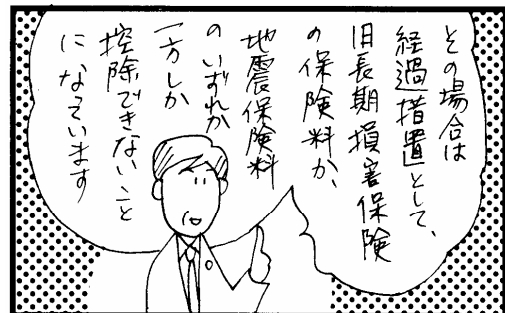 その場合は
経過措置として、
旧長期損害保険
の保険料か、
地震保険料
のいずれか
一方しか
控除できないこと
になっています